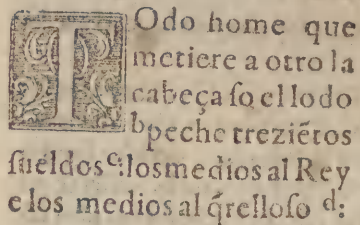 TOdo home que
metiere a otro la
cabeça ſo el lodo
b peche treziẽtos
ſueldos c: los medios al Rey
e los medios al q̃relloſo d: